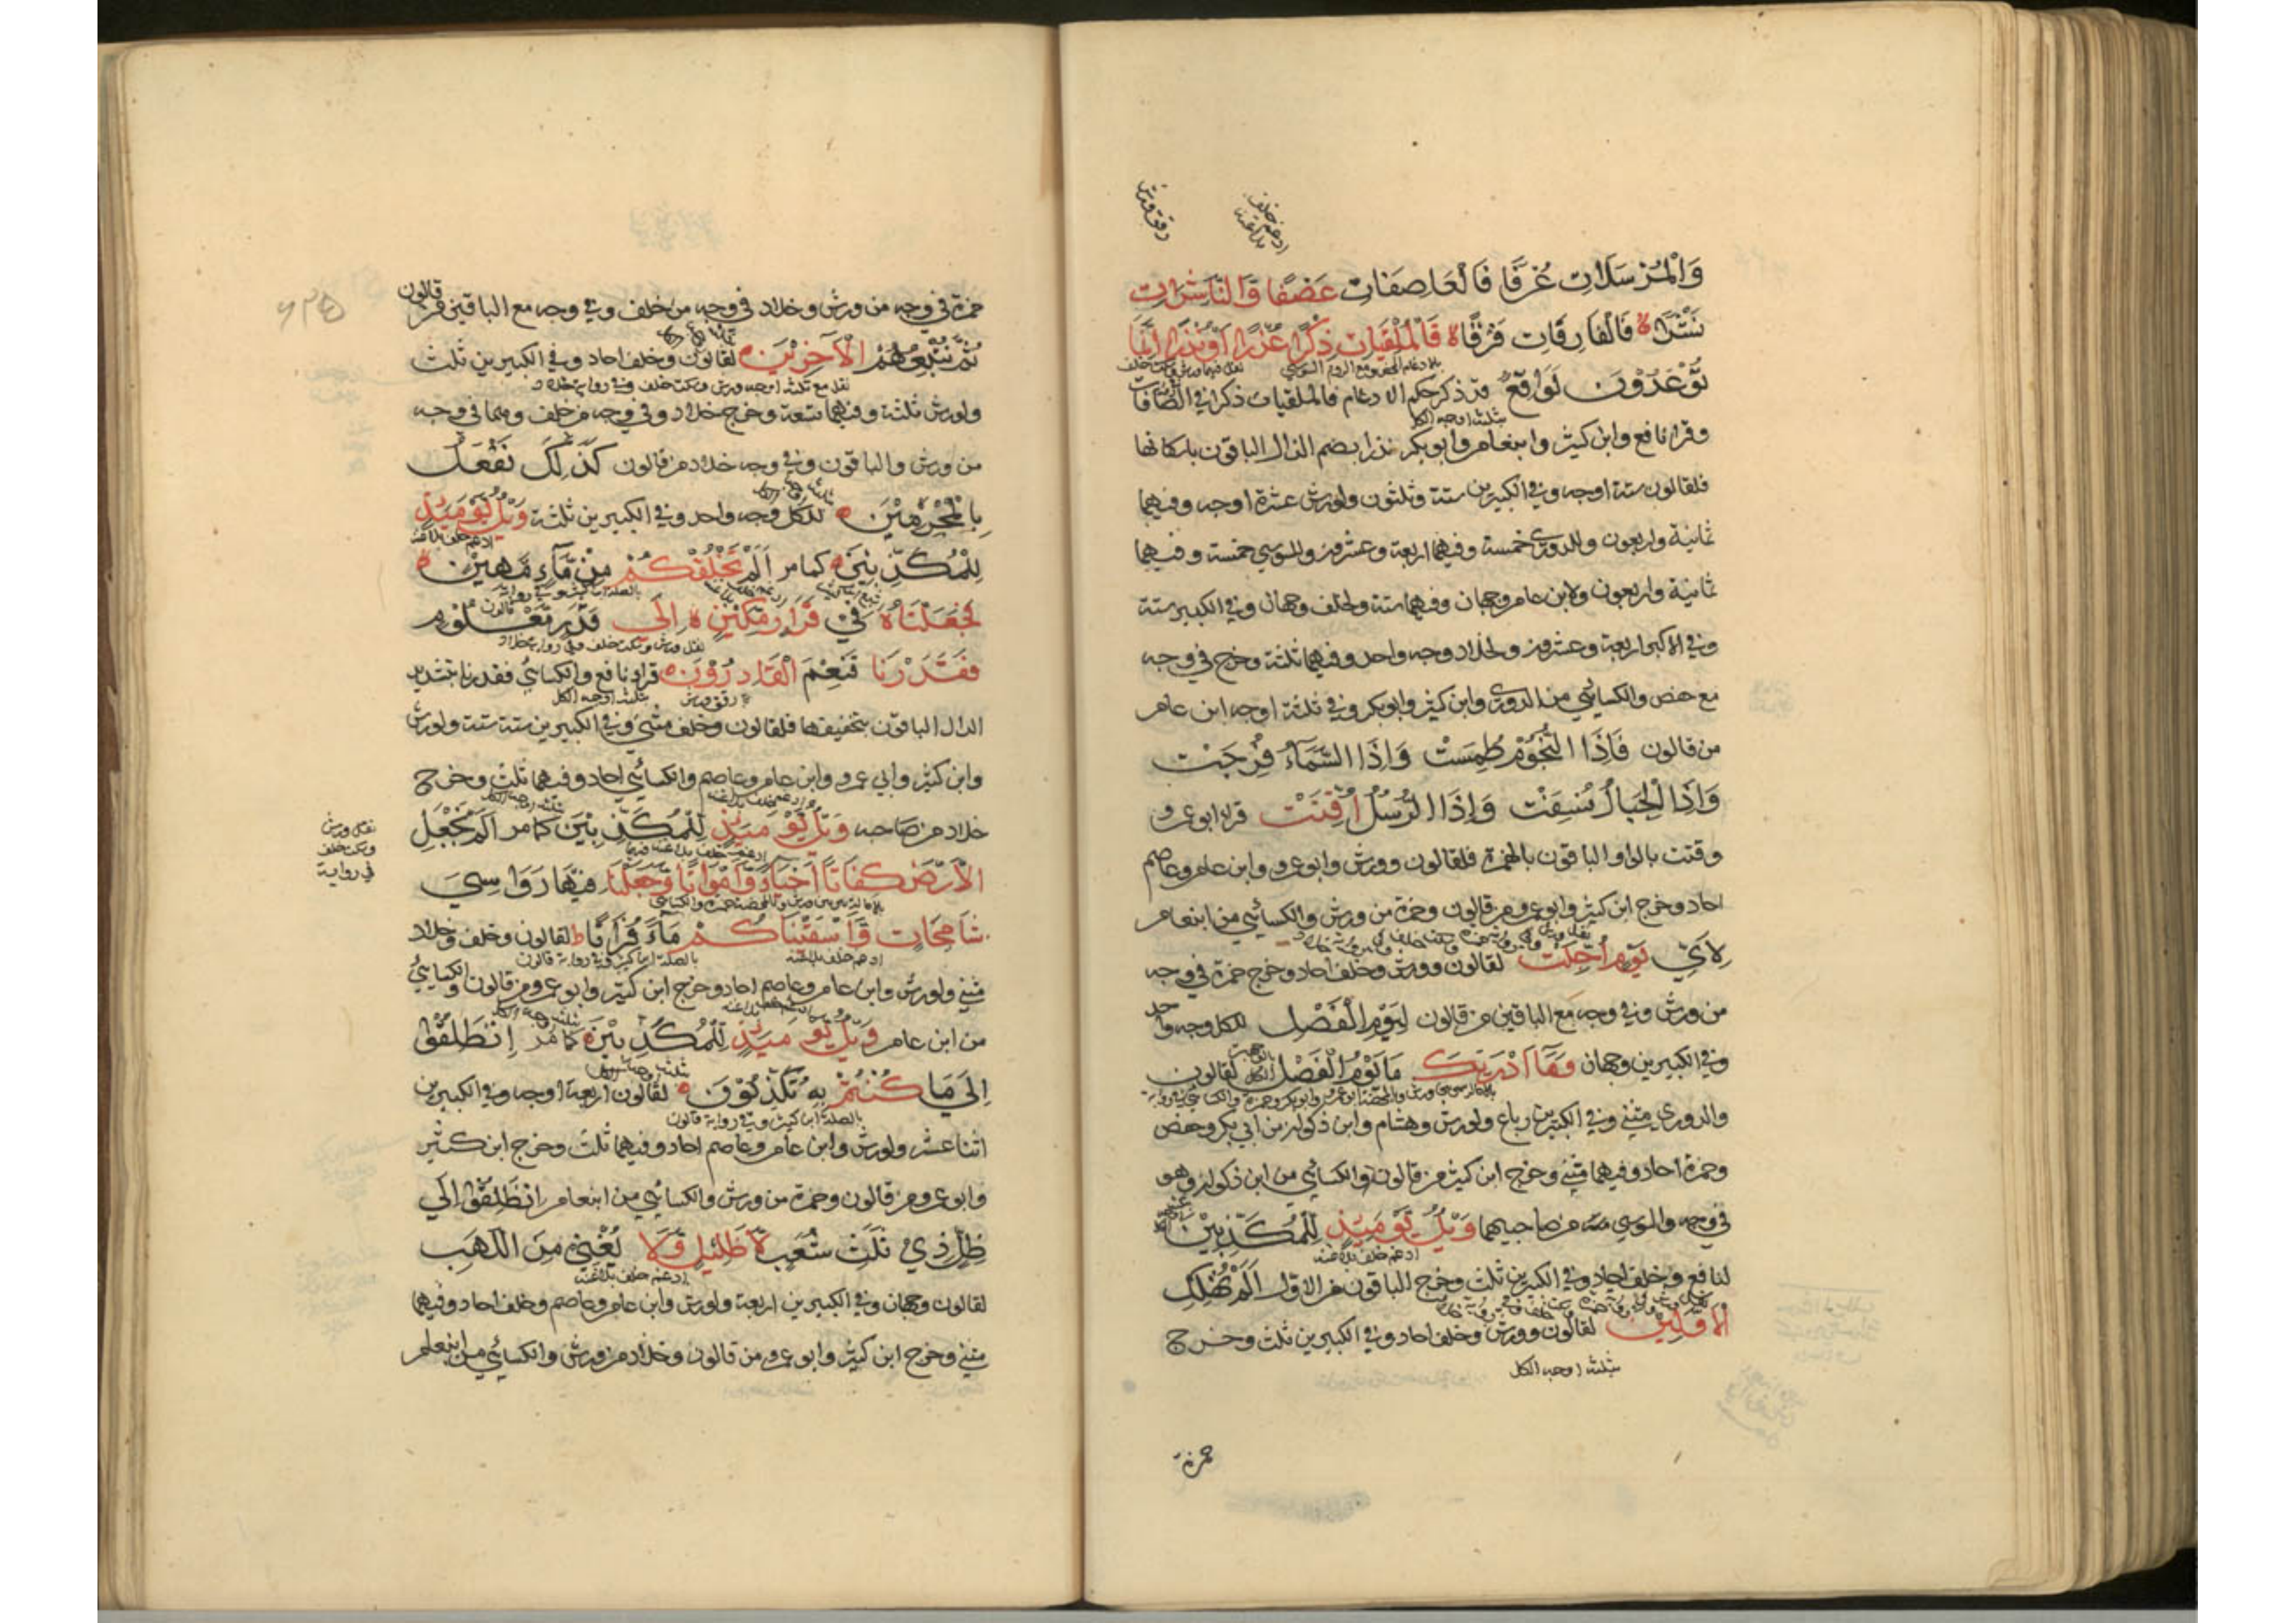 رقق ورش
ادغم خلف
بلاغنة
وَالْمُرْسَلَاتِ عُرْفًا فَالْعَاصِفَاتِ عَصْفًا وَالنَّاشِرَاتِ
نَشْرًا فَالْفَارِقَاتِ فَرْقًا فَالْمُلْقِيَاتِ ذِكْرًا عُذْرًا أَوْ نُذْرًا إِنَّمَا
تُوعَدُونَ لَوَاقِعٌ قد ذكر حكم الادغام فالملقيات ذكرا في الصافات
ثلثة اوجه الكل
وقرا نافع وابن كثير وابنعامر وابوبكر نذرا بضم الذال الباقون باسكانها
فلقالون ستة اوجه وفي الكبيرين ستة وثلثون ولورش عشرة اوجه وفيهما
ثمانية واربعون وللدوري خمسة وفيهما اربعة وعشرون وللسوسي خمسة وفيهما
ثمانية واربعون ولابن عامر وجهان وفيهما ستة ولخلف وجهان وفي الكبير ستة
وفي الاكبر اربعة وعشرون ولخلاد وجه واحد وفيهما ثلثة وخرج في وجه
مع حفص والكسائي من الدوري وابن كثير وابوبكر وفي ثلثة اوجه ابن عامر
من قالون فَإِذَا النُّجُومُ طُمِسَتْ وَإِذَا السَّمَاءُ فُرِجَتْ
وَإِذَا الْجِبَالُ نُسِفَتْ وَإِذَا الرُّسُلُ أُقِّتَتْ قرا ابوعمرو
وقتت بالواو الباقون بالهمزة فلقالون وورش وابوعمرو وابن عامر وعاصم
احاد وخرج ابن كثير وابوعمرو من قالون وحمزة من ورش والكسائي من ابنعامر
لِأَيِّ يَوْمٍ أُجِّلَتْ لقالون وورش وخلف احاد وخرج حمزة في وجه
من ورش وفي وجه مع الباقين من قالون لِيَوْمِ الْفَصْلِ للكل وجه واحد
وفي الكبيرين وجهان وَمَا أَدْرَىٰكَ مَا يَوْمُ الْفَصْلِ لقالون
والدوري مثنى وفي الكبيرين رباع ولورش وهشام وابن ذكوان من ابي بكر وحفص
وحمزة احاد وفيهما مثنى وخرج ابن كثير من قالون والكسائي من ابن ذكوان وهو
في وجه والسوسي منه من صاحبيهما وَيْلٌ يَوْمَئِذٍ لِلْمُكَذِّبِينَ
ادغم خلف بلاغنة
لنافع وخلف احاد وفي الكبيرين ثلث وخرج الباقون من الاول أَلَمْ نُهْلِكِ
الْأَوَّلِينَ لقالون وورش وخلف احاد وفي الكبيرين ثلث وخرج
ثلثة اوجه الكل
حمزة
حمزة في وجه من ورش وخلاد في وجه من خلف وفي وجه مع الباقين من قالون
ثُمَّ نُتْبِعُهُمُ الْآخِرِينَ لقالون وخلف احاد وفي الكبيرين ثلث
ولورش ثلثة وفيهما تسعة وخرج خلاد وفي وجه من خلف وهما في وجه
من ورش والباقون وفي وجه خلاد من قالون كَذَٰلِكَ نَفْعَلُ
بِالْمُجْرِمِينَ للكل وجه واحد وفي الكبيرين ثلثة وَيْلٌ يَوْمَئِذٍ
لِلْمُكَذِّبِينَ كما مر أَلَمْ نَخْلُقْكُمْ مِنْ مَاءٍ مَهِينٍ
فَجَعَلْنَاهُ فِي قَرَارٍ مَكِينٍ إِلَى قَدَرٍ مَعْلُومٍ
فَقَدَرْنَا فَنِعْمَ الْقَادِرُونَ قرا نافع والكسائي فقدرنا بتشديد
رقق ورش ثلثة اوجه الكل
الدال الباقون بتخفيفها فلقالون وخلف مثنى وفي الكبيرين ستة ستة ولورش
وابن كثير وابي عمرو وابن عامر وعاصم والكسائي احاد وفيهما ثلث وخرج
خلاد من صاحبه وَيْلٌ يَوْمَئِذٍ لِلْمُكَذِّبِينَ كما مر أَلَمْ نَجْعَلِ
نقل ورش
وسكت خلف
في رواية
الْأَرْضَ كِفَاتًا أَحْيَاءً وَأَمْوَاتًا وَجَعَلْنَا فِيهَا رَوَاسِيَ
شَامِخَاتٍ وَأَسْقَيْنَاكُمْ مَاءً فُرَاتًا لقالون وخلف وخلاد
ادغم خلف بلاغنة بالصلة ابن كثير وفي رواية قالون
مثنى ولورش وابن عامر وعاصم احاد وخرج ابن كثير وابو عمرو من قالون والكسائي
من ابن عامر وَيْلٌ يَوْمَئِذٍ لِلْمُكَذِّبِينَ كما مر انْطَلِقُوا
إِلَى مَا كُنْتُمْ بِهِ تُكَذِّبُونَ لقالون اربعة اوجه وفي الكبيرين
بالصلة ابن كثير وفي رواية قالون
اثنا عشر ولورش وابن عامر وعاصم احاد وفيهما ثلث وخرج ابن كثير
وابوعمرو من قالون وحمزة من ورش والكسائي من ابنعامر انْطَلِقُوا إِلَى
ظِلٍّ ذِي ثَلَٰثِ شُعَبٍ لَا ظَلِيلٍ وَلَا يُغْنِي مِنَ اللَّهَبِ
ادغم خلف بلاغنة
لقالون وجهان وفي الكبيرين اربعة ولورش وابن عامر وعاصم وخلف احاد وفيهما
مثنى وخرج ابن كثير وابو عمرو من قالون وخلاد من ورش والكسائي من ابنعامر